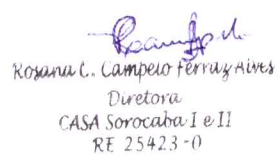 Rosana C. Campelo Ferraz Alves
Diretora
CASA Sorocaba I e II
RE 25423-0